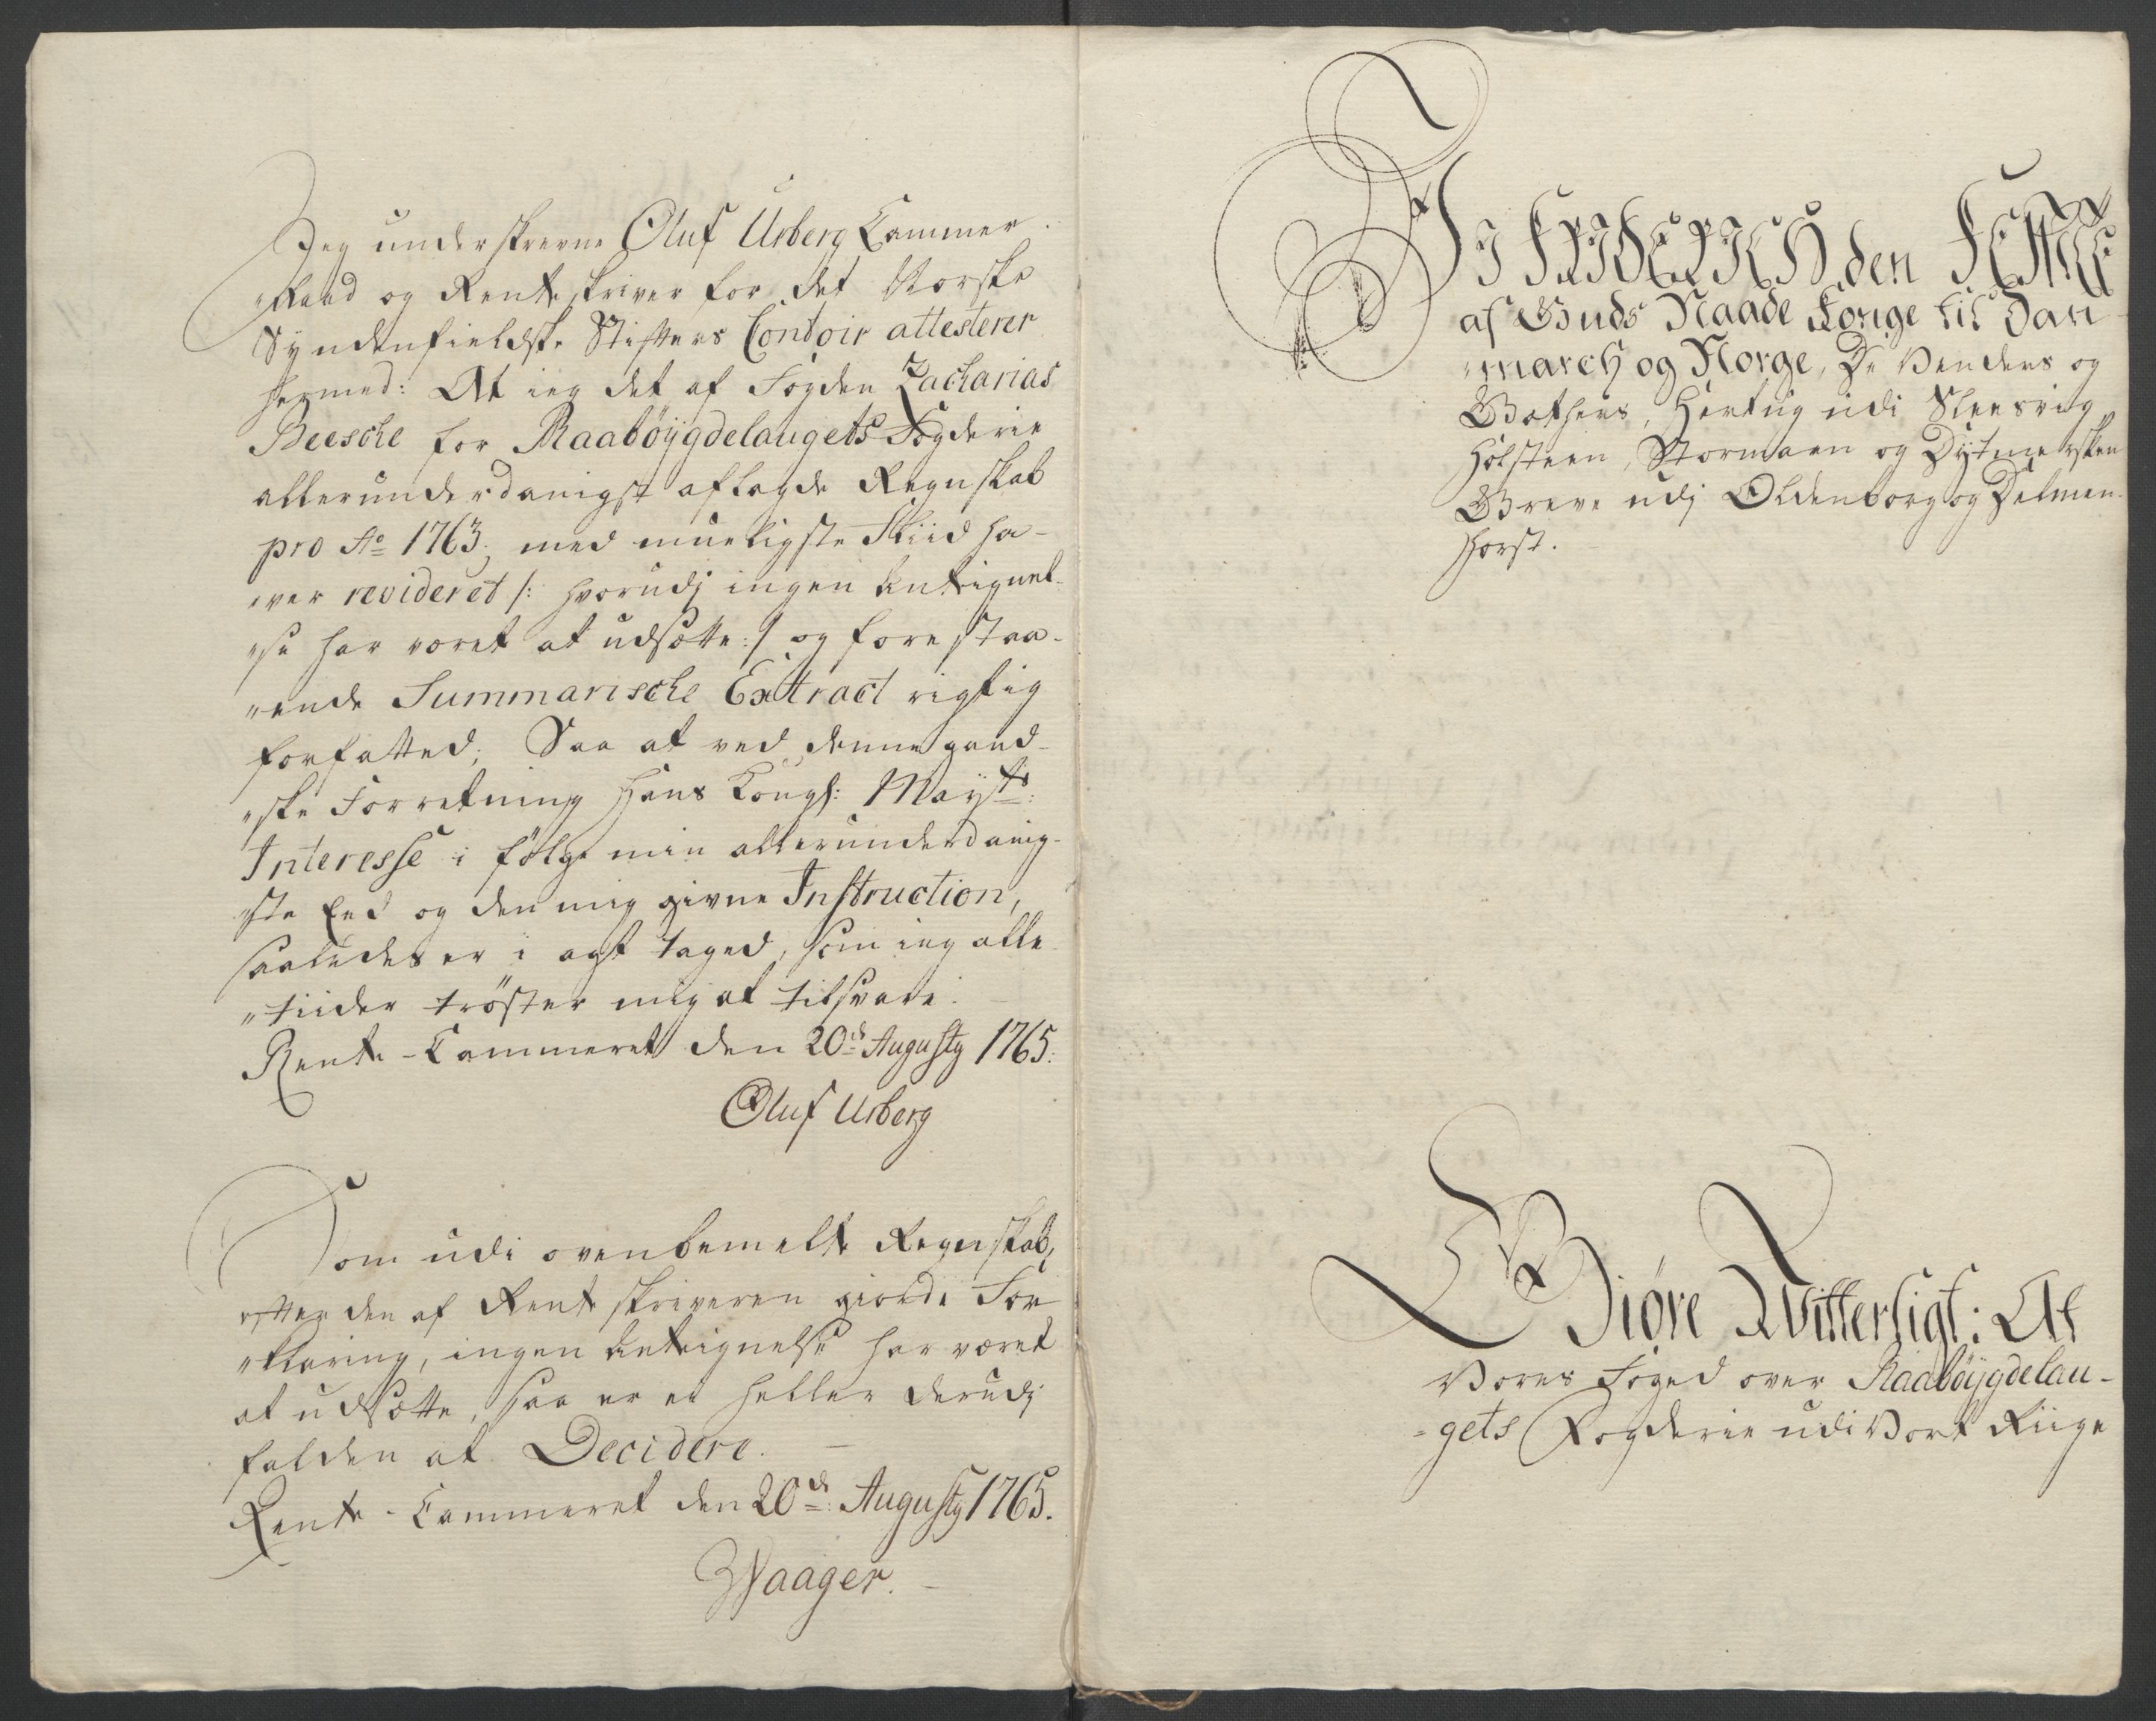 Jeg underskrevne Oluf Urberg Cammer
„Raad og Renteskriver for det Norske
Syndenfieldske Stifters Contoir attesterer
hermed: At ieg det af Fogden Zacharias
Beesche for Raabøÿgdelaugets Fogderie
allerunderdanigst aflagde Regnskab
pro Ao 1763. med mueligste Fliid ha-
„ver revideret /: hvorudj ingen Antegnel-
„se har været at udsætte :/ og forestaa-
„ende Summarische Extract rigtig
forfatted; Saa at ved denne gand-
„ske Forretning Hans Kongl: Maÿts:
Interesse i følge min allerunderdanig-
„ste Eed og den mig givne Instruction,
saaledes er i agt taged, som ieg alle
„tiider trøster mig at tilsvare.
Rente-Cammeret den 20de Augusty 1765.
Oluf Urberg
Som udi ovenbemelte Regnskab,
efter den af Renteskriveren giorde For
„klaring, ingen Antegnelse har været
at udsætte, saa er ei heller derudj
falden at Decidere. —
Rente-Cammeret den 20de: Augusty 1765.
Waager. —
VJ FRJDERJCH den FEMTE
af Guds Naade Konge til Dan
„march og Norge, De Venders og
Gothers, Hertug udi Sleesvig
Holsteen, Stormarn og Dytmersken
Greve udj Oldenborg og Delmen-
Horst.
Giøre Vitterligt: At
Vores Foged over Raabøÿgdelau-
-gets Fogderie udi Vort Riige